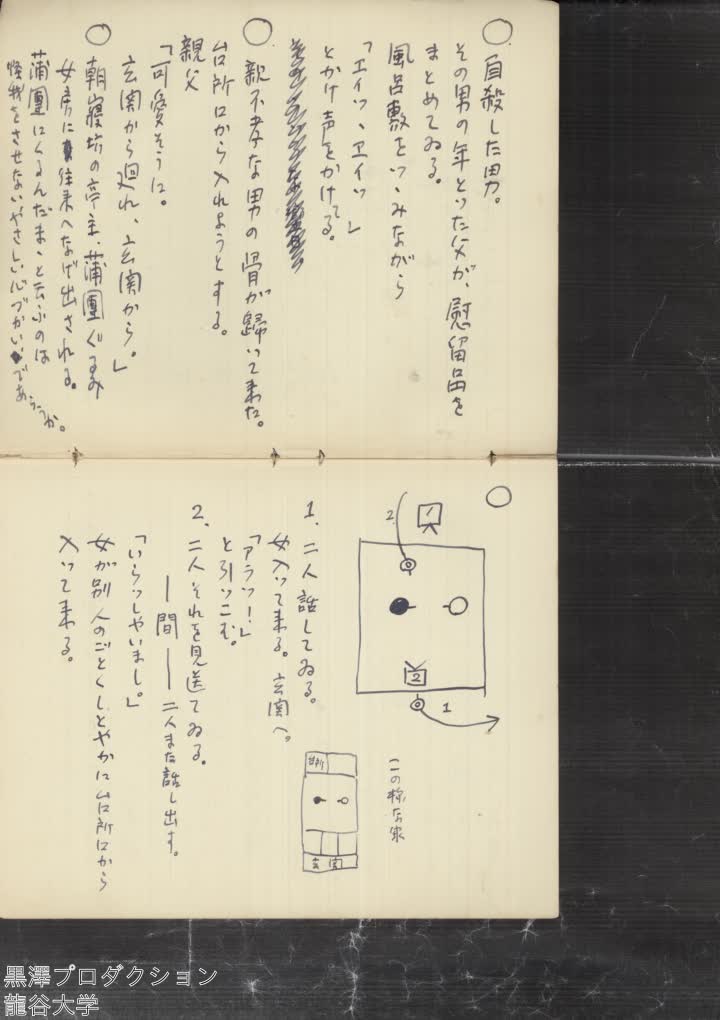 ○ 自殺した男。
その男の年とった父が、慰留品を
まとめてゐる。
風呂敷をつゝみながら
「エイッ、ヱイッ」
とかけ声をかけてる。
○ 親不孝な男の骨が歸いて来た。
台所口から入れようとする。
親父
「可愛そうに。
玄関から廻れ、玄関から。」
○ 朝寝坊の亭主、蒲團ぐるみ
女房に往来へなげ出される。
蒲團にくるんだまゝと云ふのは
怪我をさせないやさしい心づかいであらうか。
○
1
2
2
1
この様な家
台所
玄関
1、二人話してゐる。
女入って来る。玄関へ。
「アラッ!」
と引っこむ。
2、二人それを見送てゐる。
―間― 二人また話し出す。
「いらっしやいまし。」
女が別人のごとくしとやかに台所口から
入って来る。
黒澤プロダクション
龍谷大学